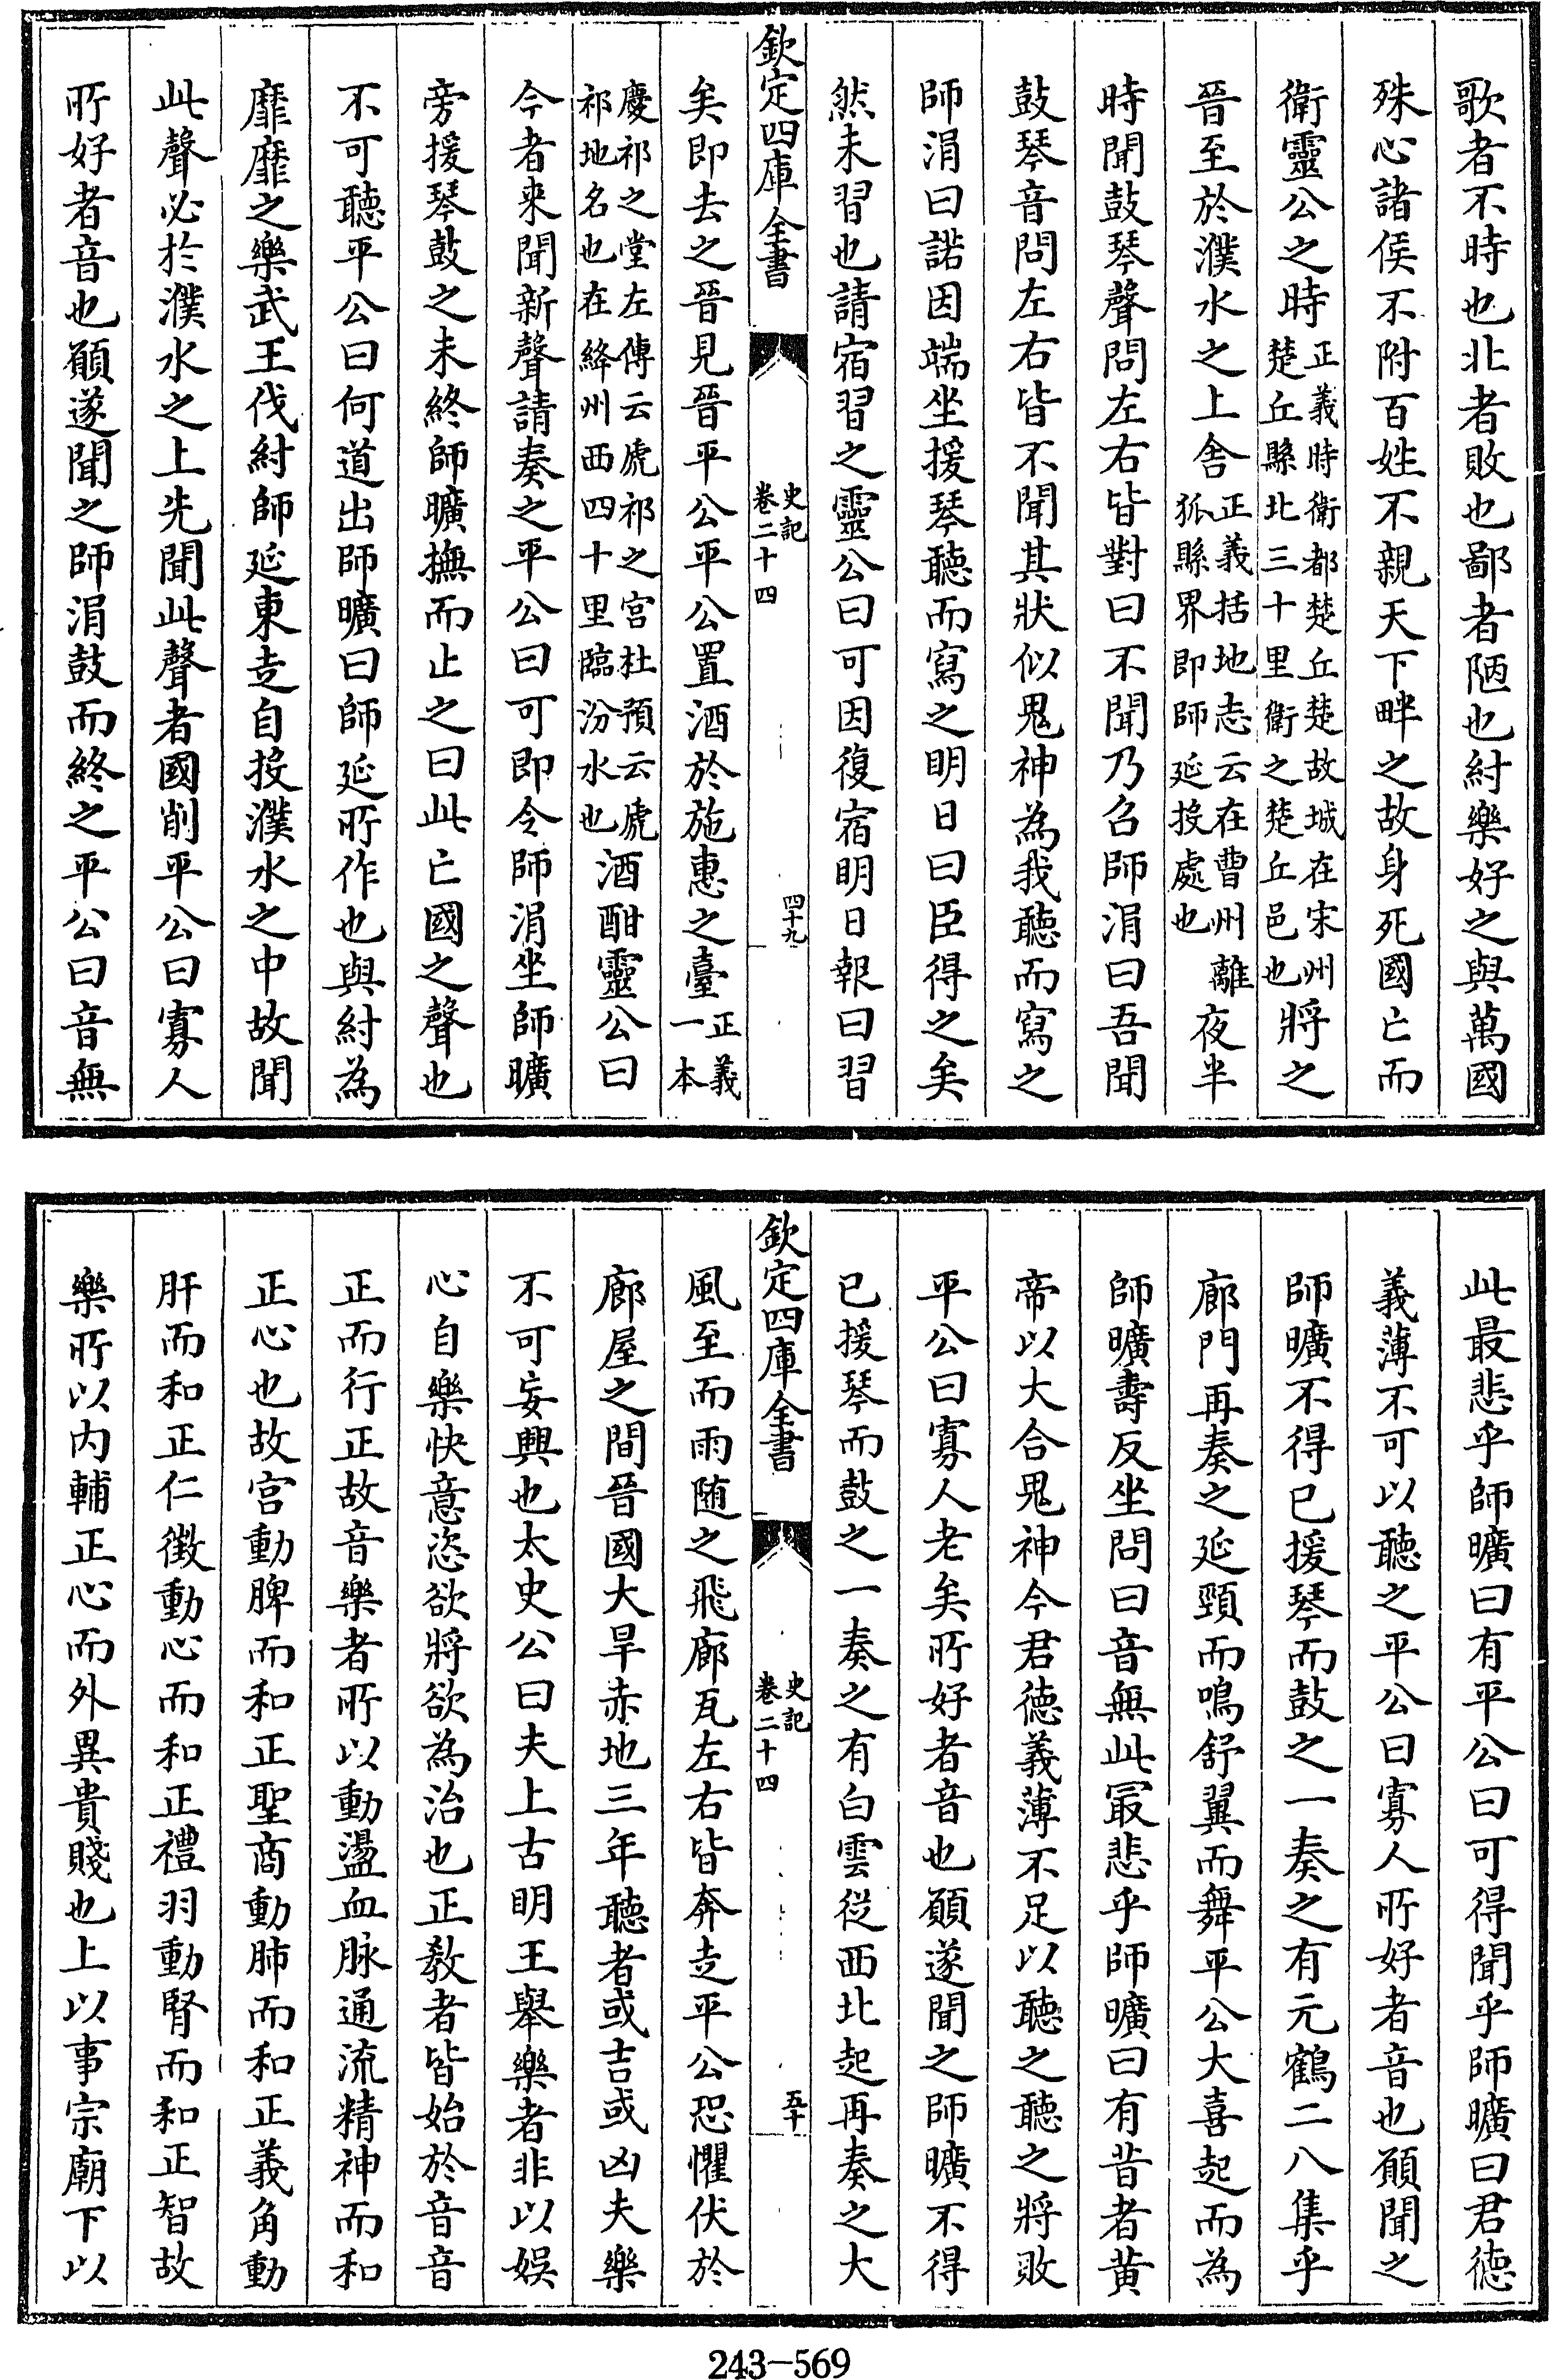 歌者不時也北者敗也鄙者陋也紂樂好之與萬國
殊心諸侯不附百姓不親天下畔之故身死國亡而
衛靈公之時正義時衛都楚丘楚故城在宋州楚丘縣北三十里衛之楚丘邑也將之
晉至於濮水之上舍正義括地志云在曹州離狐縣界即師延投處也夜半
時聞鼓琴聲問左右皆對曰不聞乃召師涓曰吾聞
鼓琴音問左右皆不聞其狀似鬼神為我聽而寫之
師涓曰諾因端坐援琴聽而寫之明日曰臣得之矣
然未習也請宿習之靈公曰可因復宿明日報曰習
欽定四庫全書
史記
卷二十四
四十九
矣即去之晉見晉平公平公置酒於施惠之臺正義一本
慶祁之堂左傳云虒祁之宫杜預云虒祁地名也在絳州西四十里臨汾水也酒酣靈公曰
今者来聞新聲請奏之平公曰可即令師涓坐師曠
旁援琴鼓之未終師曠撫而止之曰此亡國之聲也
不可聽平公曰何道出師曠曰師延所作也與紂為
靡靡之樂武王伐紂師延東走自投濮水之中故聞
此聲必於濮水之上先聞此聲者國削平公曰寡人
所好者音也願遂聞之師涓鼓而終之平公曰音無
此最悲乎師曠曰有平公曰可得聞乎師曠曰君徳
義薄不可以聽之平公曰寡人所好者音也願聞之
師曠不得已援琴而鼓之一奏之有元鶴二八集乎
廊門再奏之延頸而鳴舒翼而舞平公大喜起而為
師曠壽反坐問曰音無此最悲乎師曠曰有昔者黄
帝以大合鬼神今君徳義薄不足以聽之聽之將敗
平公曰寡人老矣所好者音也願遂聞之師曠不得
已援琴而鼓之一奏之有白雲從西北起再奏之大
欽定四庫全書
史記
卷二十四
五十
風至而雨随之飛廊瓦左右皆奔走平公恐懼伏於
廊屋之間晉國大旱赤地三年聽者或吉或凶夫樂
不可妄興也太史公曰夫上古明王舉樂者非以娛
心自樂快意恣欲將欲為治也正教者皆始於音音
正而行正故音樂者所以動盪血脉通流精神而和
正心也故宫動脾而和正聖商動肺而和正義角動
肝而和正仁徴動心而和正禮羽動腎而和正智故
樂所以内輔正心而外異貴賤也上以事宗廟下以
243-569